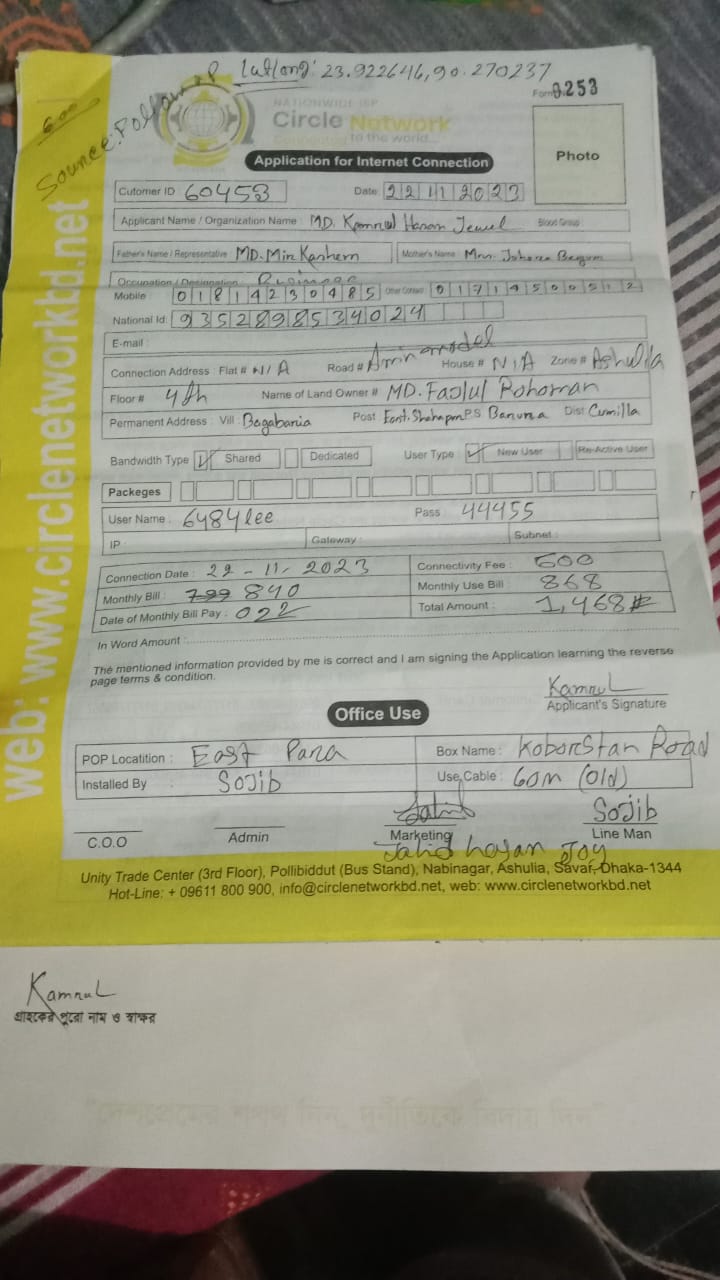 Lat/long: 23.922646, 90.270237
600
Source: Follow up
Form 0.253
NATIONWIDE ISP
Circle Network
Connecting to the world...
Application for Internet Connection
Photo
Cutomer ID 60453 Date 22 11 2023
Applicant Name / Organization Name : MD. Kamrul Hasan Jewel Blood Group
Father's Name / Representative MD. Mir Kashem Mother's Name Begum
Occupation / Designation
Mobile 01814230485 Other Contact
National Id: 9352898534024
E-mail :
Connection Address : Flat # N/A Road # Amin model House # N/A Zone # Ashulia
Floor # 4th Name of Land Owner # MD. Fazlul Rohoman
Permanent Address : Vill : Bagabaria Post P.S Barura Dist Cumilla
Bandwidth Type Shared Dedicated User Type : New User Re-Active User
Packeges
User Name : 6484lee Pass : 44455
IP : Gateway : Subnet :
Connection Date : 22 - 11 - 2023 Connectivity Fee : 600
Monthly Bill : 799 840 Monthly Use Bill : 868
Date of Monthly Bill Pay : 022 Total Amount : 1,468
In Word Amount :
The mentioned information provided by me is correct and I am signing the Application learning the reverse
page terms & condition.
Kamrul
Applicant's Signature
Office Use
POP Locatition : East Para Box Name : Koborstan Road
Installed By : Sojib Use Cable : 60m (Old)
Jahid Sojib
C.O.O Admin Marketing Line Man
Jahid hasan Joy
Unity Trade Center (3rd Floor), Pollibiddut (Bus Stand), Nabinagar, Ashulia, Savar, Dhaka-1344
Hot-Line: + 09611 800 900, info@circlenetworkbd.net, web: www.circlenetworkbd.net
web: www.circlenetworkbd.net
Kamrul
গ্রাহকের পুরো নাম ও স্বাক্ষর
"দেশপ্রেমের শপথ নিন, দুর্নীতিকে বিদায় দিন"